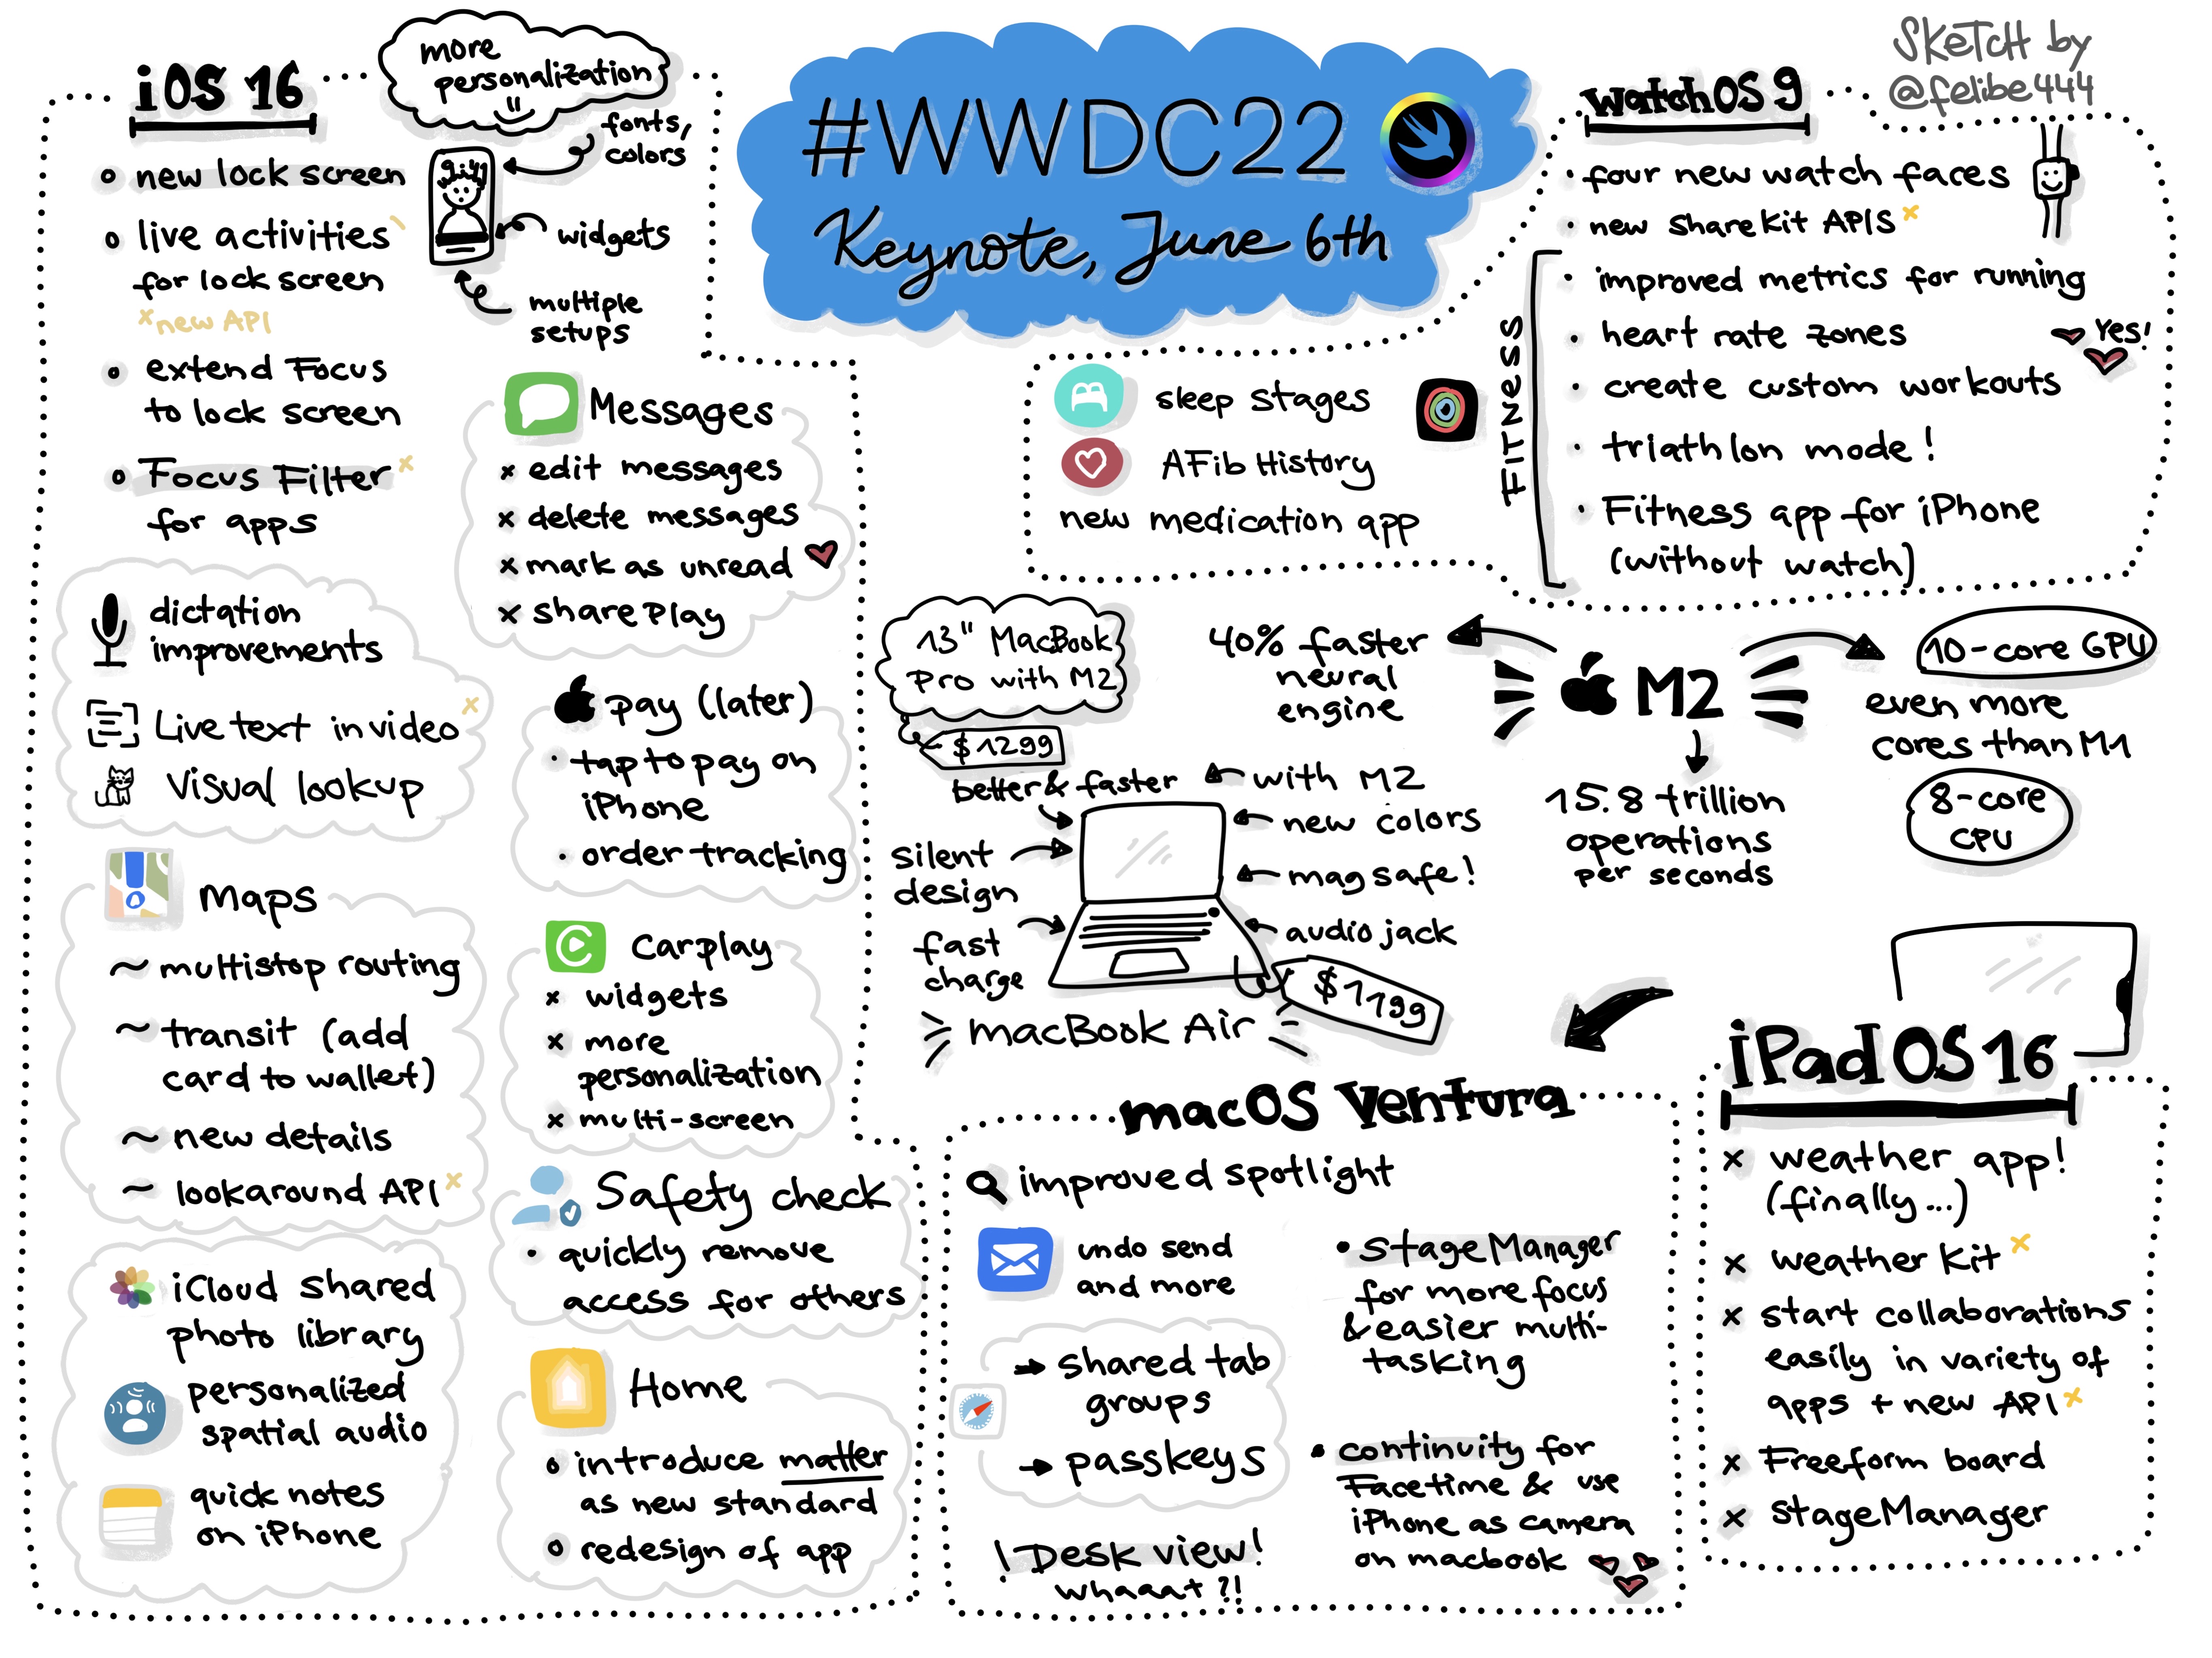 #WWDC22
Keynote, June 6th
SKETCH by
@felibe444
iOS 16
more
personalization
fonts,
colors
widgets
multiple
setups
9:41
new lock screen
live activities
for lock screen
x new API
extend Focus
to lock screen
Focus Filter x
for apps
dictation
improvements
Live text in video x
Visual lookup
Maps
~ multistop routing
~ transit (add
card to wallet)
~ new details
~ lookaround API x
iCloud shared
photo library
personalized
spatial audio
quick notes
on iPhone
Messages
x edit messages
x delete messages
x mark as unread
x sharePlay
pay (later)
• tap to pay on
iPhone
• order tracking
Carplay
x widgets
x more
personalization
x multi-screen
Safety check
• quickly remove
access for others
Home
introduce matter
as new standard
redesign of app
watchOS 9
• four new watch faces
• new ShareKit APIS x
FITNESS
• improved metrics for running
• heart rate zones
Yes!
• create custom workouts
• triathlon mode!
• Fitness app for iPhone
(without watch)
sleep stages
AFib History
new medication app
13" MacBook
Pro with M2
$1299
M2
40% faster
neural
engine
15.8 trillion
operations
per seconds
10-core GPU
even more
cores than M1
8-core
CPU
better & faster
silent
design
fast
charge
with M2
new colors
magsafe!
audio jack
$1199
macBook Air
macOS Ventura
improved spotlight
undo send
and more
→ shared tab
groups
→ passkeys
! Desk view!
whaaat?!
• StageManager
for more focus
& easier multi-
tasking
• continuity for
Facetime & use
iPhone as camera
on macbook
iPadOS 16
x weather app!
(finally...)
x weather Kit x
x start collaborations
easily in variety of
apps + new API x
x Freeform board
x stageManager